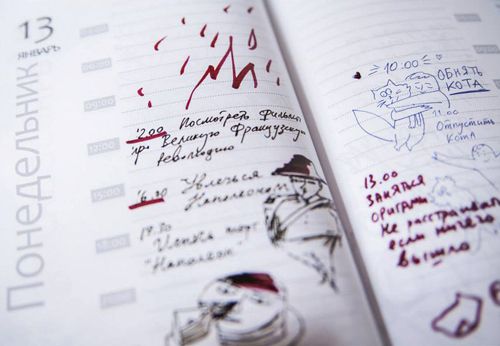 13
ЯНВАРЬ
Понедельник
09:00
12:00
12.00 Посмотреть фильм
пр. Великую Французскую
революцию
15:00
Увлечься
Наполеоном
"Наполеон"
10:00
ОБНЯТЬ
КОТА
11:00
Отпустить
кота
13.00
ЗАНЯТЬСЯ
ОРИГАМИ
Не расстраиват
если ничего
вышло